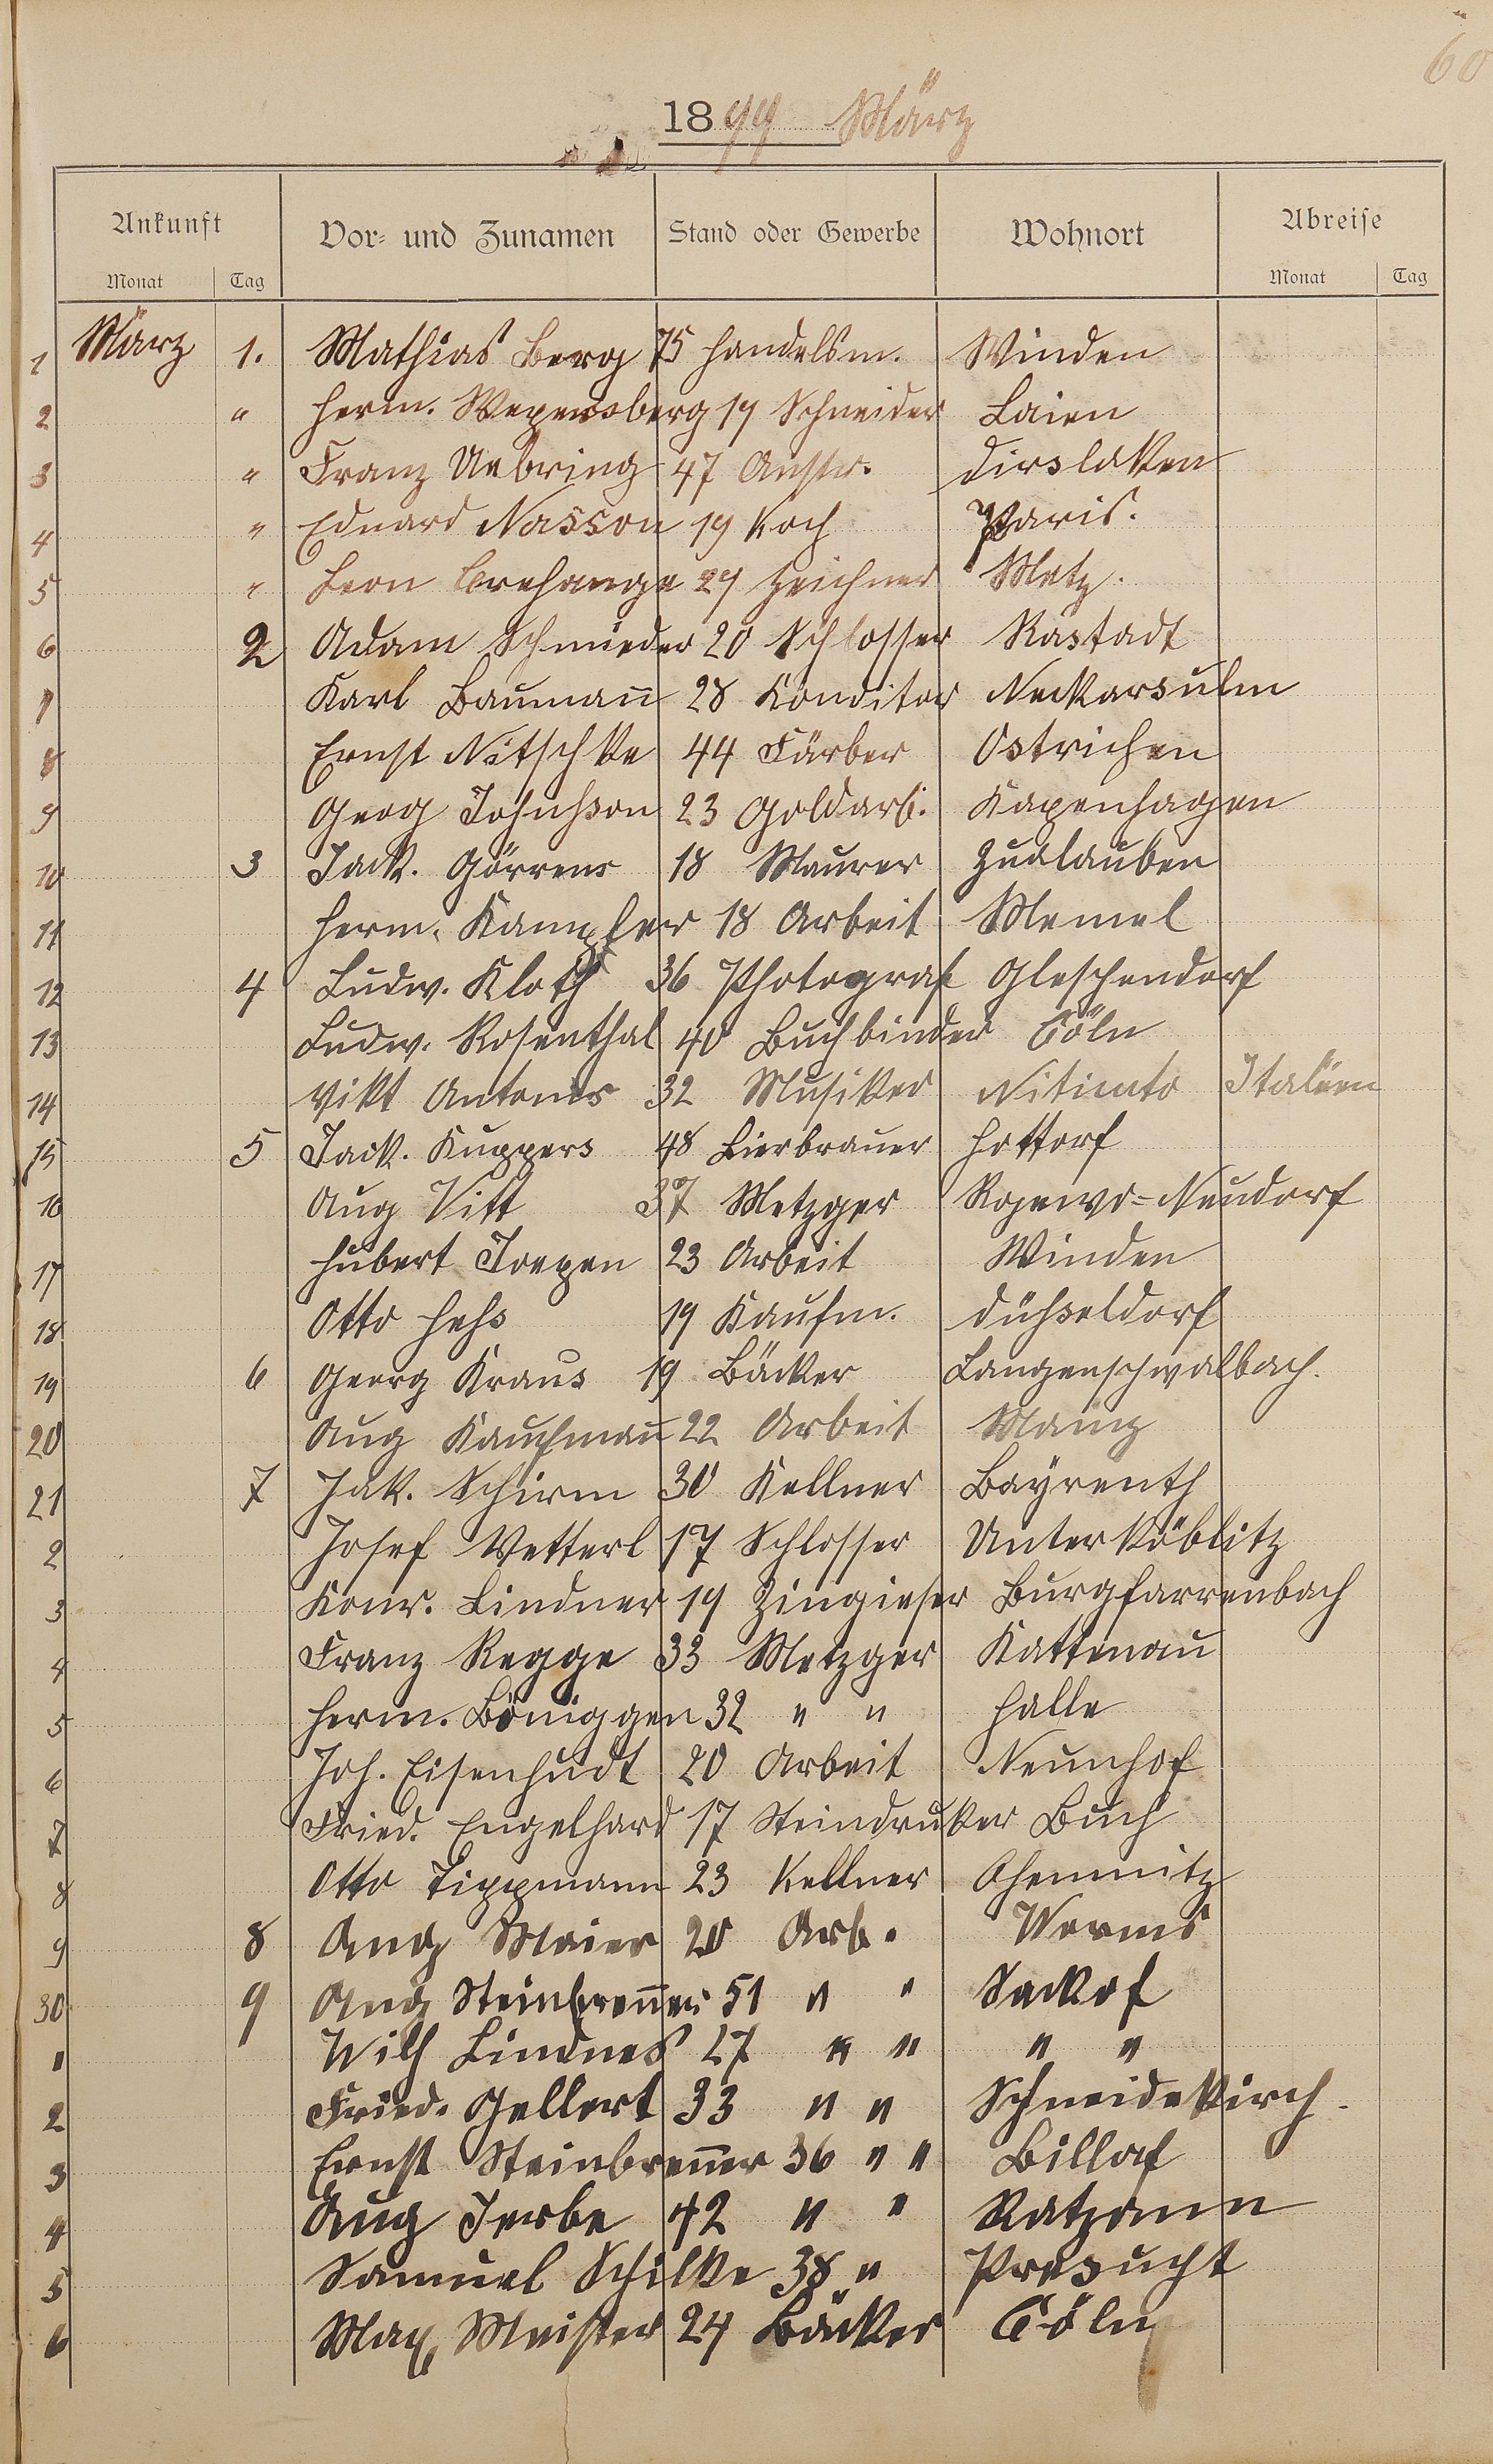 60
1899 März
Ankunft Vor- und Zunamen Stand oder Gewerbe Wohnort Abreise
Monat Tag Monat Tag
1 März 1. Mathias Berg 75 Handelsm. Winden
2 " Herm. Wepersberg 19 Schneider Laien
3 " Franz Uebring 47 Anstr. Dirslaken
4 " Eduard Nasson 19 Koch Paris.
5 " Leon Brehange 29 Zeichner Metz.
6 2 Adam Schmieder 20 Schlosser Rastadt
7 Karl Baumann 28 Konditor Neckarsulm
8 Ernst Nitschke 44 Färber Ostrichen
9 Georg Johnhson 23 Goldarb. Kapenhagen
10 3 Jack. Görrens 18 Maurer
11 Herm. Kampfer 18 Arbeit Memel
12 4 Ludw. Kloth 36 Photograf Gleschendorf
13 Ludw. Rosenthal 40 Buchbinder Cöln
14 Vikt Antonies 32 Musiker Italien
15 5 Jack. Kuppers 48 Bierbrauer Hottorf
16 Aug Vitt 37 Metzger Rojewo-Neudorf
17 Hubert Joepen 23 Arbeit Winden
18 Otto Hehs 19 Kaufm. Dühseldorf
19 6 Georg Kraus 19 Bäcker Langenschwalbach.
20 Aug Kaufmann 22 Arbeit Mainz
21 7 Jak. Schirm 30 Kellner Bayreuth
2 Josef Vetterl 17 Schlosser Unterköblitz
3 Konr. Lindner 19 Zingieser Burgfarrenbach
4 Franz Regge 33 Metzger Kattenau
5 Herm. Böniggen 32 " " Halle
6 Joh. Eisenhudt 20 Arbeit Neunhof
7 Fried. Engelhard 17 Steindruker Buch
8 Otto Tippmann 23 Kellner Chemnitz
9 8 Aug Maier 20 Arb. Worms
30 9 Aug Steinbrenner 51 " " Sackof
1 Wilh Lindnes 27 " " " "
2 Fried. Gellert 33 " " Schneidekirch.
3 Ernst Steinbrenner 36 " " Billaf
4 Aug Jerbe 42 " " Ratzann
5 Samuel Schilke 38 " Prosucht
6 Max Meister 24 Bäcker Cöln